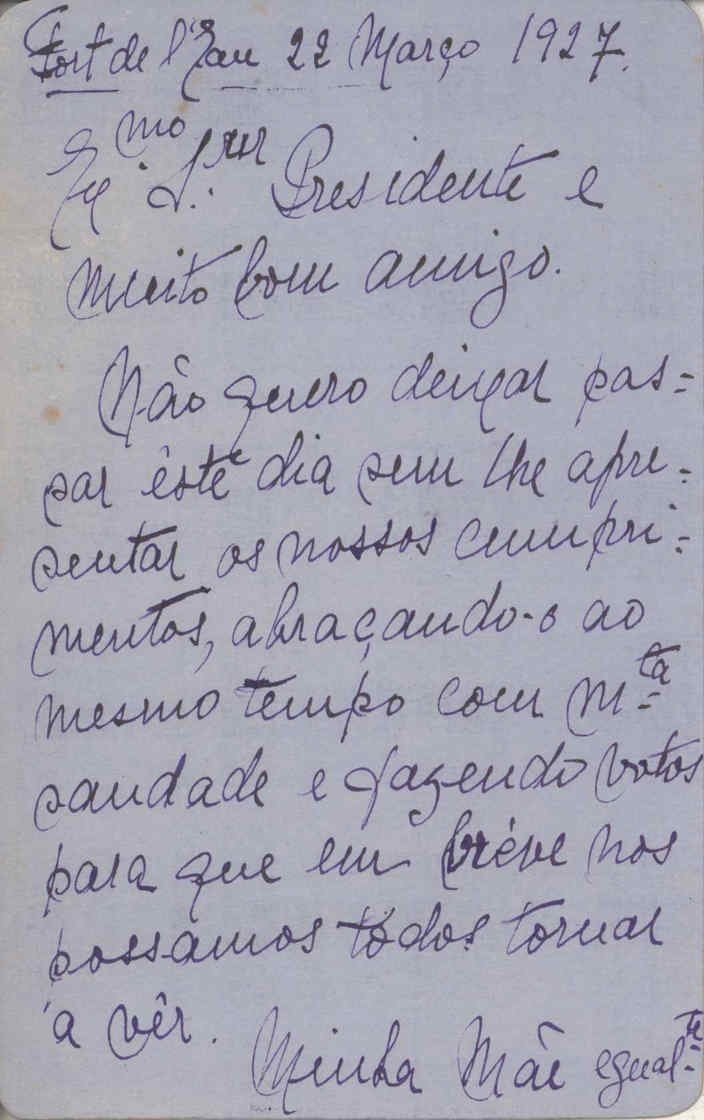 Fort de l'Eau 22 Março 1927.
Exmo Snr Presidente e
muito bom amigo.
Não quero deixar pas=
sar êste dia sem lhe apre=
sentar os nossos cumpri=
mentos, abraçando-o ao
mesmo tempo com mta
saudade e fazendo votos
para que em bréve nos
possamos todos tornar
a vêr. Minha Mãe egualte